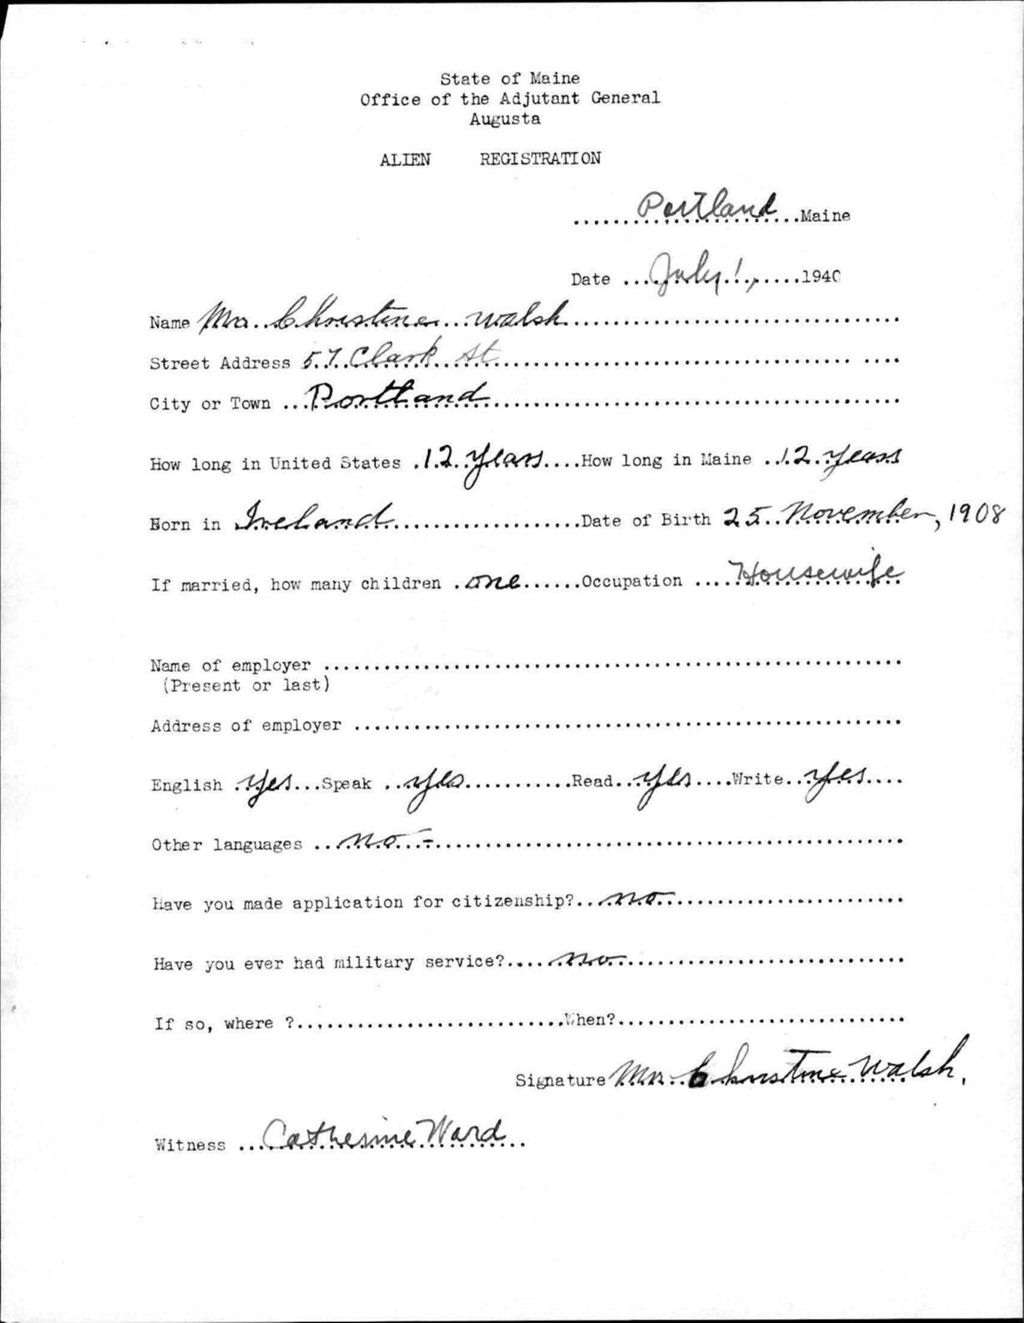 State of Maine
Office of the Adjutant General
Augusta
ALIEN REGISTRATION
......Portland...Maine
Date ...July 1,.....1940
Name Mrs. Christine Walsh
Street Address 57 Clark St
City or Town ...Portland
How long in United States .12 years....How long in Maine ..12 years
Born in Ireland...Date of Birth 25 November, 1908
If married, how many children .one......Occupation ....Housewife
Name of employer
(Present or last)
Address of employer
English yes...Speak ..yes...Read..yes....Write..yes....
Other languages ..no.-
Have you made application for citizenship?...no
Have you ever had military service?.....no
If so, where ?...When?
Signature Mrs. Christine Walsh.
Witness ...Catherine Ward..